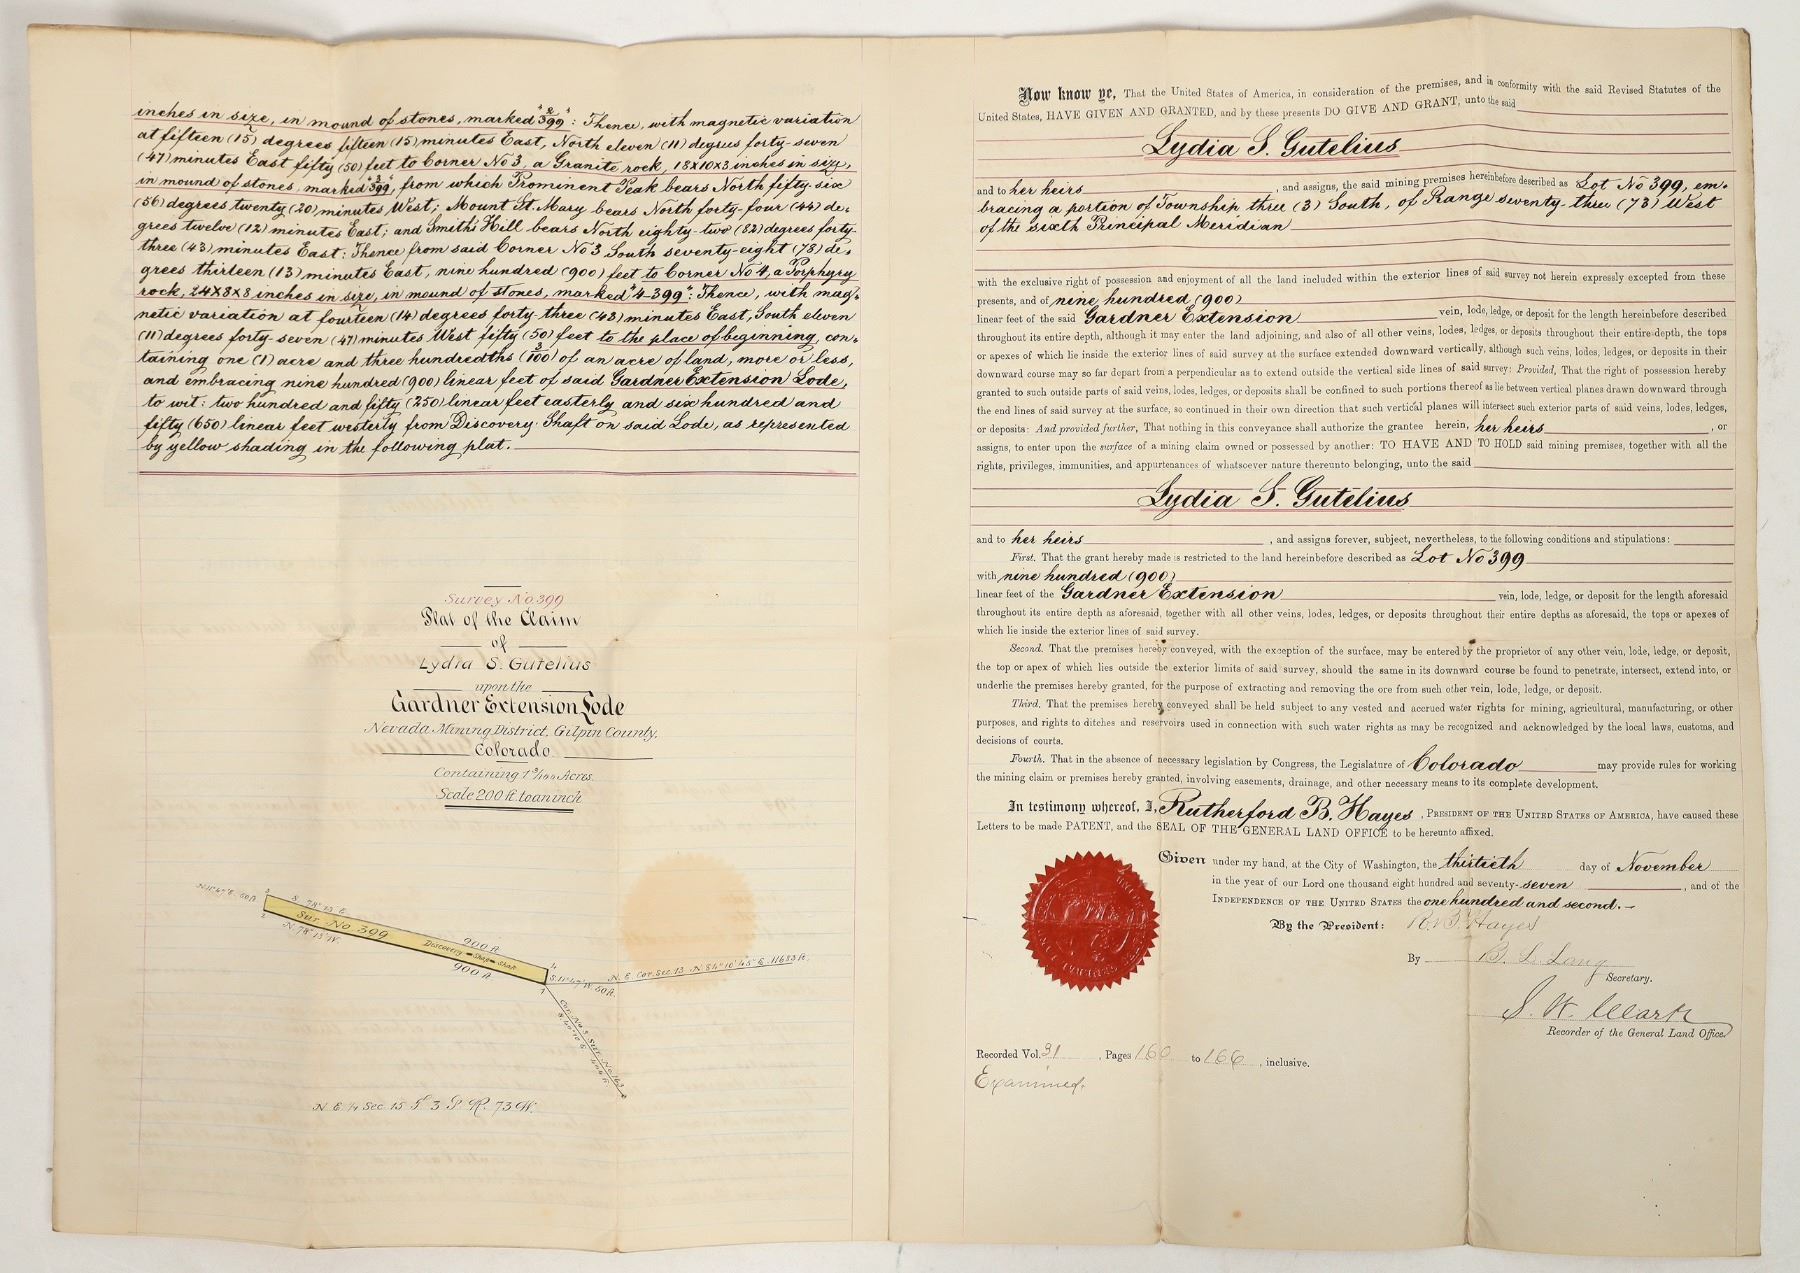 inches in size, in mound of stones, marked "2/399": Thence, with magnetic variation
at fifteen (15) degrees fifteen (15) minutes East, North eleven (11) degrees forty-seven
(47) minutes East fifty (50) feet to Corner No 3, a Granite rock, 18x10x8 inches in size,
in mound of stones, marked "3/399", from which Prominent Peak bears North fifty-six
(56) degrees twenty (20) minutes West; Mount St. Mary bears North forty-four (44) de-
grees twelve (12) minutes East; and Smith's Hill bears North eighty-two (82) degrees forty-
three (43) minutes East: Thence from said Corner No 3, South seventy-eight (78) de-
grees thirteen (13) minutes East, nine hundred (900) feet to Corner No 4, a Porphyry
rock, 24x8x8 inches in size, in mound of stones, marked "4-399": Thence, with mag-
netic variation at fourteen (14) degrees forty-three (43) minutes East, South eleven
(11) degrees forty-seven (47) minutes West fifty (50) feet to the place of beginning, con-
taining one (1) acre and three hundredths (3/100) of an acre of land, more or less,
and embracing nine hundred (900) linear feet of said Gardner Extension Lode,
to wit: two hundred and fifty (250) linear feet easterly and six hundred and
fifty (650) linear feet westerly from Discovery Shaft on said Lode, as represented
by yellow shading in the following plat.
Survey No 399
Plat of the Claim
of
Lydia S. Gutelius
upon the
Gardner Extension Lode
Nevada Mining District, Gilpin County,
Colorado
Containing 1 3/100 Acres.
Scale 200 ft. to an inch
N. 11° 47' E. 50 ft.
3
2
S. 78° 13' E.
Sur. No 399
N. 78° 13' W.
900 ft.
Discovery Shaft
900 ft.
4
1
S. 11° 47' W. 50 ft.
N. E. Cor. Sec. 13 N. 84° 10' 45" E. 11683 ft.
N. E. 1/4 Sec 15 T. 3 S. R. 73 W.
Now know ye, That the United States of America, in consideration of the premises, and in conformity with the said Revised Statutes of the
United States, HAVE GIVEN AND GRANTED, and by these presents DO GIVE AND GRANT, unto the said
Lydia S. Gutelius
and to her heirs, and assigns, the said mining premises hereinbefore described as Lot No 399, em-
bracing a portion of Township three (3) South, of Range seventy-three (73) West
of the sixth Principal Meridian
with the exclusive right of possession and enjoyment of all the land included within the exterior lines of said survey not herein expressly excepted from these
presents, and of nine hundred (900)
linear feet of the said Gardner Extension vein, lode, ledge, or deposit for the length hereinbefore described
throughout its entire depth, although it may enter the land adjoining, and also of all other veins, lodes, ledges, or deposits throughout their entire depth, the tops
or apexes of which lie inside the exterior lines of said survey at the surface extended downward vertically, although such veins, lodes, ledges, or deposits in their
downward course may so far depart from a perpendicular as to extend outside the vertical side lines of said survey: Provided, That the right of possession hereby
granted to such outside parts of said veins, lodes, ledges, or deposits shall be confined to such portions thereof as lie between vertical planes drawn downward through
the end lines of said survey at the surface, so continued in their own direction that such vertical planes will intersect such exterior parts of said veins, lodes, ledges,
or deposits: And provided further, That nothing in this conveyance shall authorize the grantee herein, her heirs, or
assigns, to enter upon the surface of a mining claim owned or possessed by another: TO HAVE AND TO HOLD said mining premises, together with all the
rights, privileges, immunities, and appurtenances of whatsoever nature thereunto belonging, unto the said
Lydia S. Gutelius
and to her heirs, and assigns forever, subject, nevertheless, to the following conditions and stipulations:
First. That the grant hereby made is restricted to the land hereinbefore described as Lot No 399
with nine hundred (900)
linear feet of the Gardner Extension vein, lode, ledge, or deposit for the length aforesaid
throughout its entire depth as aforesaid, together with all other veins, lodes, ledges, or deposits throughout their entire depths as aforesaid, the tops or apexes of
which lie inside the exterior lines of said survey.
Second. That the premises hereby conveyed, with the exception of the surface, may be entered by the proprietor of any other vein, lode, ledge, or deposit,
the top or apex of which lies outside the exterior limits of said survey, should the same in its downward course be found to penetrate, intersect, extend into, or
underlie the premises hereby granted, for the purpose of extracting and removing the ore from such other vein, lode, ledge, or deposit.
Third. That the premises hereby conveyed shall be held subject to any vested and accrued water rights for mining, agricultural, manufacturing, or other
purposes, and rights to ditches and reservoirs used in connection with such water rights as may be recognized and acknowledged by the local laws, customs, and
decisions of courts.
Fourth. That in the absence of necessary legislation by Congress, the Legislature of Colorado may provide rules for working
the mining claim or premises hereby granted, involving easements, drainage, and other necessary means to its complete development.
In testimony whereof, I, Rutherford B. Hayes, PRESIDENT OF THE UNITED STATES OF AMERICA, have caused these
Letters to be made PATENT, and the SEAL OF THE GENERAL LAND OFFICE to be hereunto affixed.
Given under my hand, at the City of Washington, the thirtieth day of November
in the year of our Lord one thousand eight hundred and seventy-seven, and of the
INDEPENDENCE OF THE UNITED STATES the one hundred and second.
By the President: R. B. Hayes
By B. L. Lang
Secretary.
S. W. Clark
Recorder of the General Land Office.
Recorded Vol. 31, Pages 160 to 166, inclusive.
Examined.